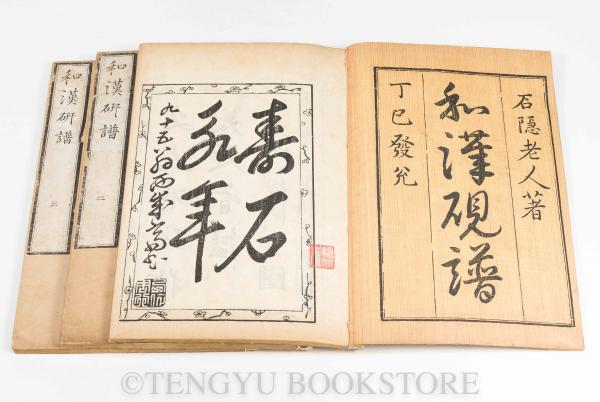 石隱老人著
和漢硯譜
丁巳發兌
壽石
永年
九十五翁
和漢研譜 二
和漢研譜 三
©TENGYU BOOKSTORE